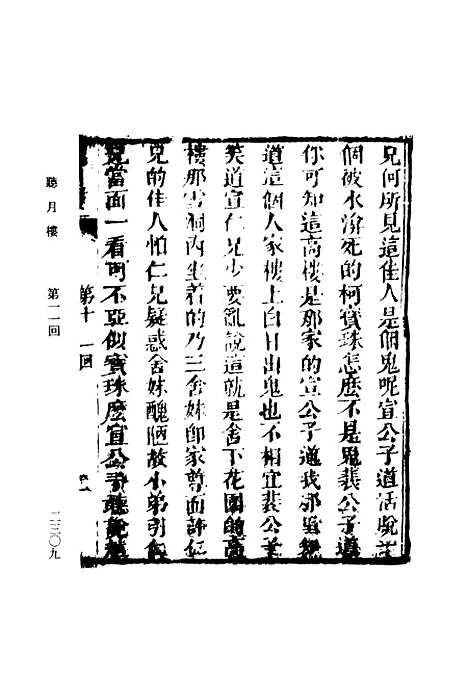 兄何所見這佳人是個鬼呢宣公子道活脫一
個被水渰死的柯寶珠怎麼不是鬼裴公子道
你可知這高樓是那家的宣公子道我那里知
道這個人家樓上白日出鬼也不相宜裴公子
笑道宣仁兄少要亂說這就是舍下花園的高
樓那雪洞內坐着的乃三舍妹卽家尊面許仁
兄的佳人怕仁兄疑惑舍妹醜陋故小弟引仁
兄當面一看可不亞似寶珠麽宣公子聽說
第十一回
聽月樓 第一一回 二三〇九